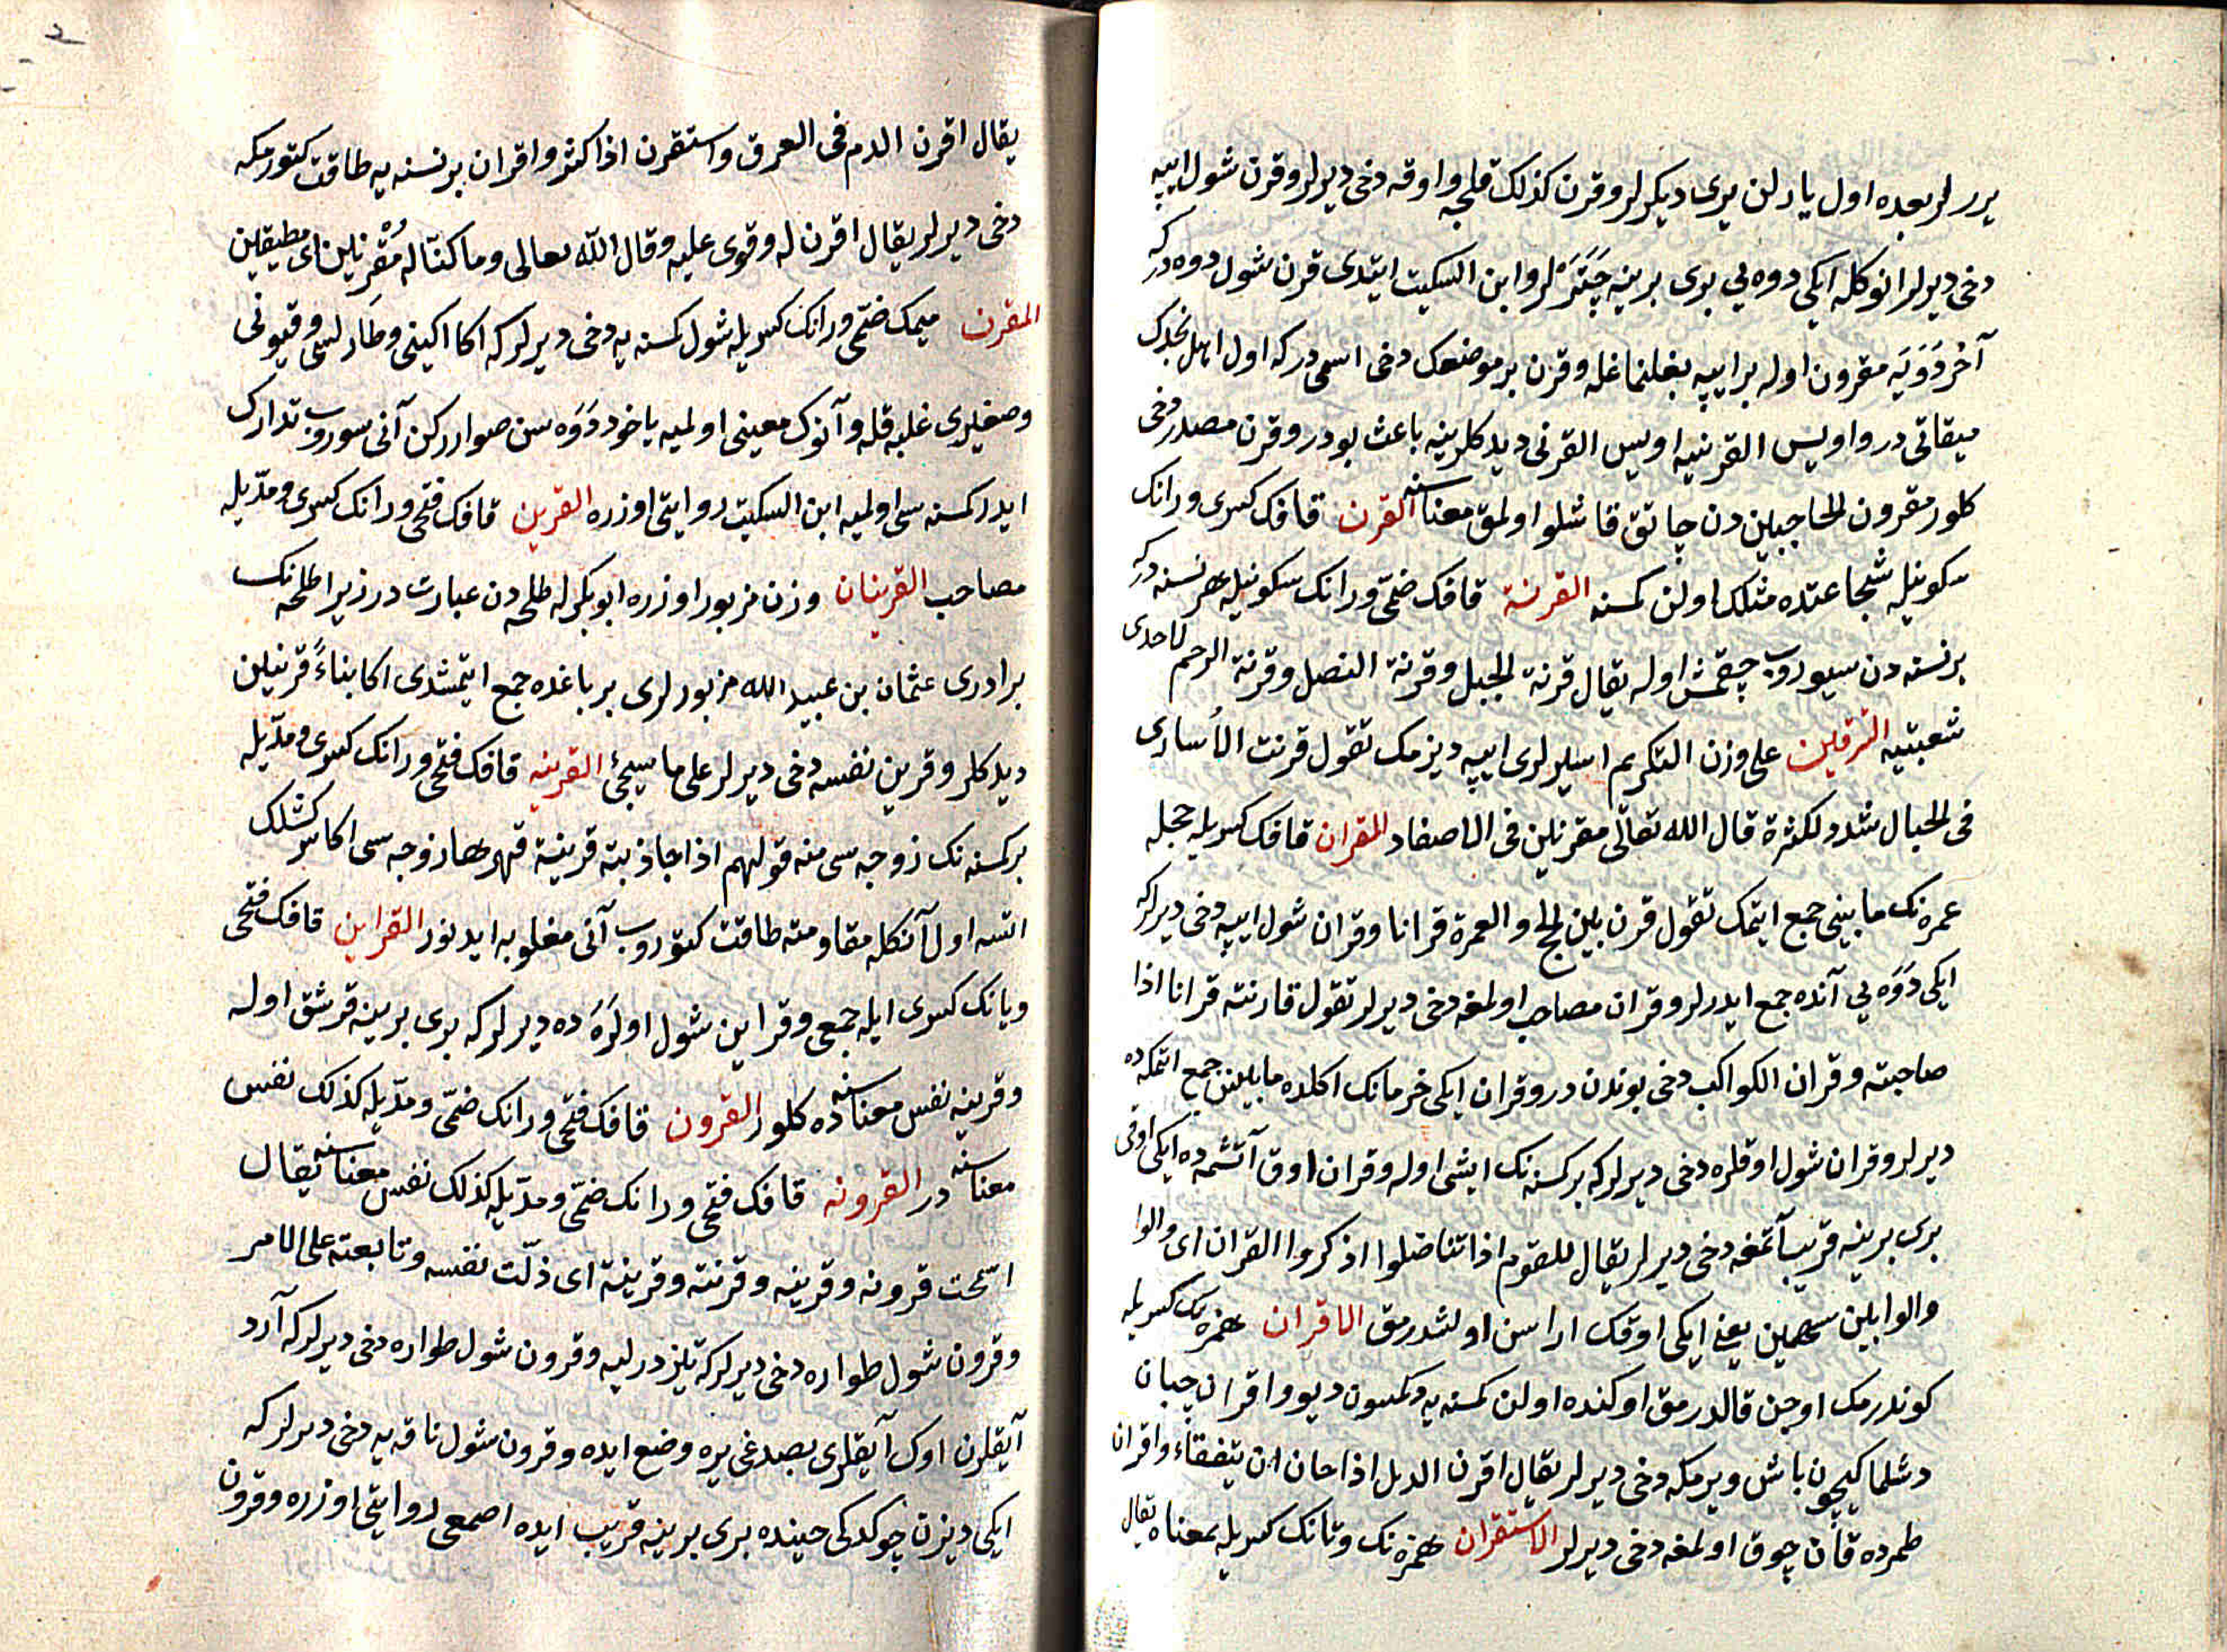 يرر لر بعده اول يارلن يرى ديكرلر وقرن كذلك قلجه واوقه دخى ديرلر وقرن شول ايپه
دخى ديرلر انوكله ايكى دوه يي برى برينه چَتَرْلر وابن السكيت ايتدى قرن شول دوه در كه
آخر دَوَيَه مقرون اوله بر ايپه بغلنماغله وقرن بر موضعك دخى اسمى در كه اول اهل نجدك
ميقاتى در واويس القرنييه اويس القرنى ديدكلرينه باعث بودر وقرن مصدر دخى
كلور مقرون الحاجبين دن چاتق قاشلو اولمق معناسنه القرن قافك كسرى ورانك
سكونيله شجاعتده مثلك اولن كمسنه القرنة قافك ضمّى ورانك سكونيله هر نسنه در كه
بر نسنه دن سيوروب چقمش اوله يقال قرنة الجبل وقرنة النصل وقرنة الرحم لاحدى
شعبتيه التقرين على وزن التكريم اسيرلرى ايپه ديزمك تقول قرنت الأسارى
فى الحبال شدد لكثرة قال الله تعالى مقرنين فى الاصفاد القران قافك كسريله حجله
عمره نك مابينى جمع ايتمك تقول قرن بين الحج والعمرة قرانا وقران شول ايپه دخى ديرلر كه
ايكى دَوَه يي آنده جمع ايدرلر وقران مصاحب اولمغه دخى ديرلر تقول قارنته قرانا اذا
صاحبته وقران الكواكب دخى بوندن در وقران ايكى خرمانك اكلده مابينن جمع اتمكه ده
ديرلر وقران شول اوقلره دخى ديرلر كه بر كسنه نك ايشى اوله وقران اوق آتشمه ده ايكى اوقى
برى برينه قريب آتمغه دخى ديرلر يقال للقوم اذا تناضلوا اذكروا القران اى والوا
والوا بين سهمين يعنى ايكى اوقك اراسن اولشدرمق الاقران همزه نك كسريله
كوندرمك اوجن قالدرمق اوكنده اولن كمسنه يه دكمسون ديو واقران چبان
دشلماكيچون باش ويرمكه دخى ديرلر يقال اقرن الدمل اذا حان ان يتفقاء واقران
طمرده قان چوق اولمغه دخى ديرلر الاستقران همزه نك وتانك كسريله بمعناه يقال
يقال اقرن الدم فى العرق واستقرن اذا كثر واقران بر نسنه يه طاقت كتورمكه
دخى ديرلر يقال اقرن له وقوى عليه وقال الله تعالى وما كنّا له مُقْرنين اى مطيقين
المقرن ميمك ضمّى ورانك كسريله شول كمسنه يه دخى ديرلر كه اكا اكينى وطَارلسى وقيونى
وصغيرى غلبه قله وآنوك معينى اولميه ياخود دَوَه سن صواررکن آنى سوروب تدارك
ايدر كمسنه سى اولميه ابن السكيت روايتى اوزره القرين قافك فتحى ورانك كسرى ومدّيله
مصاحب القرينان وزن مزبور اوزره ابوبكرله طلحه دن عبارت در زيرا طلحه نك
برادرى عثمان بن عبيد الله مزبورلرى بر باغده جمع ايتمشدى اكا بناءً قرينين
ديدكلر وقرين نفسه دخى ديرلر على ما سيجئ القرينه قافك فتحى ورانك كسرى ومدّيله
بر كمسنه نك زوجه سى منه قولهم اذا جاذبته قرينة قهرها زوجه سى اكا سركشلك
اتسه اول آنكله مقاومته طاقت كتوروب آنى مغلوبه ايدنور القراين قافك فتحى
ويانك كسرى ايله جمعى وقراين شول اولرَه ده ديرلر كه برى برينه قرشق اوله
وقرينه نفس معناسنه ده كلور القرون قافك فتحى ورانك ضمّى ومدّيله كذلك نفس
معناسنه در القرونه قافك فتحى ورانك ضمّى ومدّيله كذلك نفس معناسنه يقال
اسمحت قرونه وقرينه وقرنته وقرينة اى ذلّت نفسه وتابعته على الامر
وقرون شول طواره دخى ديرلر كه تيز درليه وقرون شول طواره دخى ديرلر كه آرد
آيقلرن اوك آيقلرى بصدغى يره وضع ايده وقرون شول ناقه يه دخى ديرلر كه
ايكى ديزن چوكدكى حينده برى برينه قريب ايده اصمعى روايتى اوزره وقرون